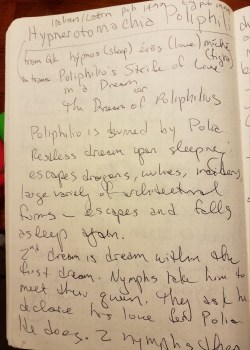 Italian/Latin pub 1499
Hypnerotomachia Poliphili
from Gk hypnos (sleep) éros (love) máche
(fight)
Poliphilo's Strife of Love
in a Dream
or
The Dream of Poliphilus
Poliphilo is spurned by Polia
Restless dream upon sleeping.
escapes dragons, wolves, maidens,
large variety of architectural
forms - escapes and falls
asleep again.
2nd dream is dream within the
first dream. Nymphs take him to
meet their queen. They ask he
declare his love for Polia
He does. 2 nymphs then